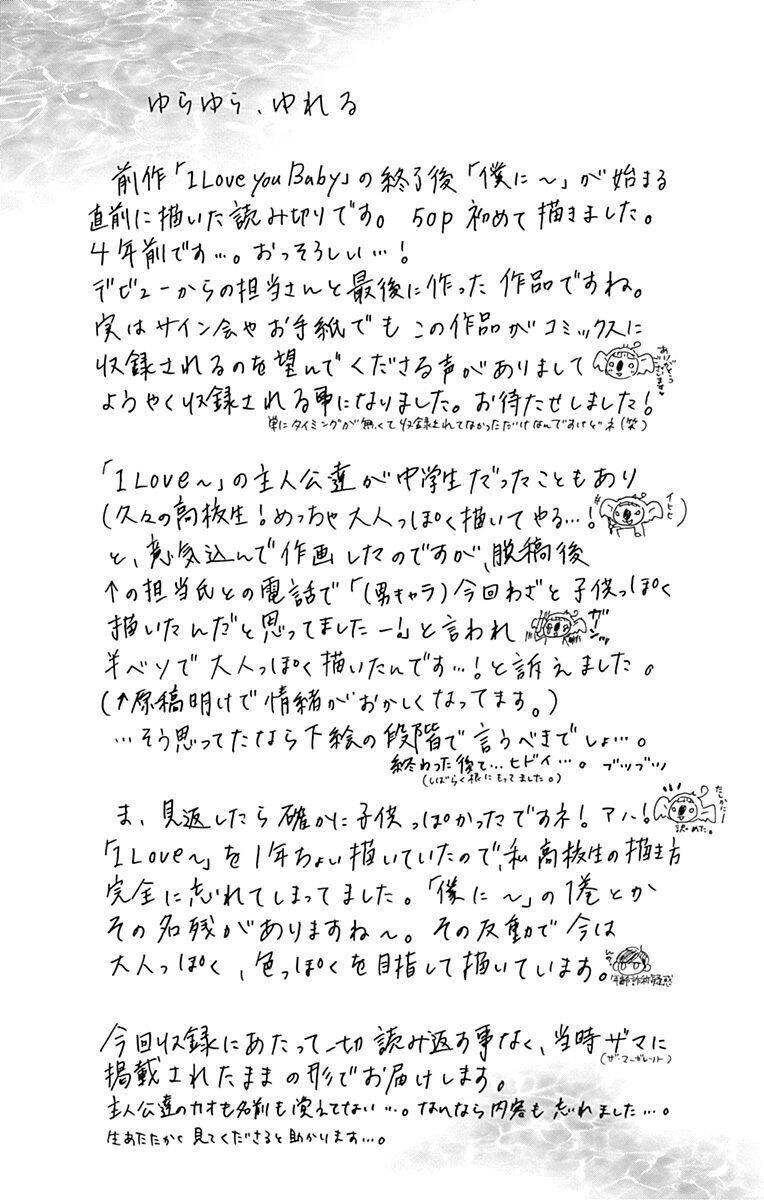 ゆらゆら、ゆれる
前作「I Love you Baby」の終了後「僕に～」が始まる
直前に描いた読み切りです。50p 初めて描きました。
4年前です…。おっそろしい…！
デビューからの担当さんと最後に作った作品ですね。
実はサイン会やお手紙でもこの作品がコミックスに
収録されるのを望んでくださる声がありまして
ありがとうございます
ようやく収録される事になりました。お待たせしました！
単にタイミングが無くて収録されてなかっただけなんですけどネ(笑)
「I Love～」の主人公達が中学生だったこともあり
(久々の高校生！めっちゃ大人っぽく描いてやる…！
)
と、意気込んで作画したのですが、脱稿後
↑の担当氏との電話で「(男キャラ)今回わざと子供っぽく
描いたんだと思ってましたー！」と言われ
ガーン
半ベソで大人っぽく描いたんです…！と訴えました。
(↑原稿明けで情緒がおかしくなってます。)
…そう思ってたなら下絵の段階で言うべきでしょ…。
終わった後で…ヒドイ…。ブツブツ
(しばらく根にもってました。)
ま、見返したら確かに子供っぽかったですネ！アハ！
たしかにー
認めた。
「I Love～」を1年ちょい描いていたので、私高校生の描き方
完全に忘れてしまってました。「僕に～」の1巻とか
その名残がありますね～。その反動で今は
大人っぽく、色っぽくを目指して描いています。
年齢詐称疑惑
今回収録にあたって一切読み返す事なく、当時ザマに
(ザ マーガレット)
掲載されたままの形でお届けします。
主人公達のカオも名前も覚えてない…。なんなら内容も忘れました…。
生あたたかく見てくださると助かります…。